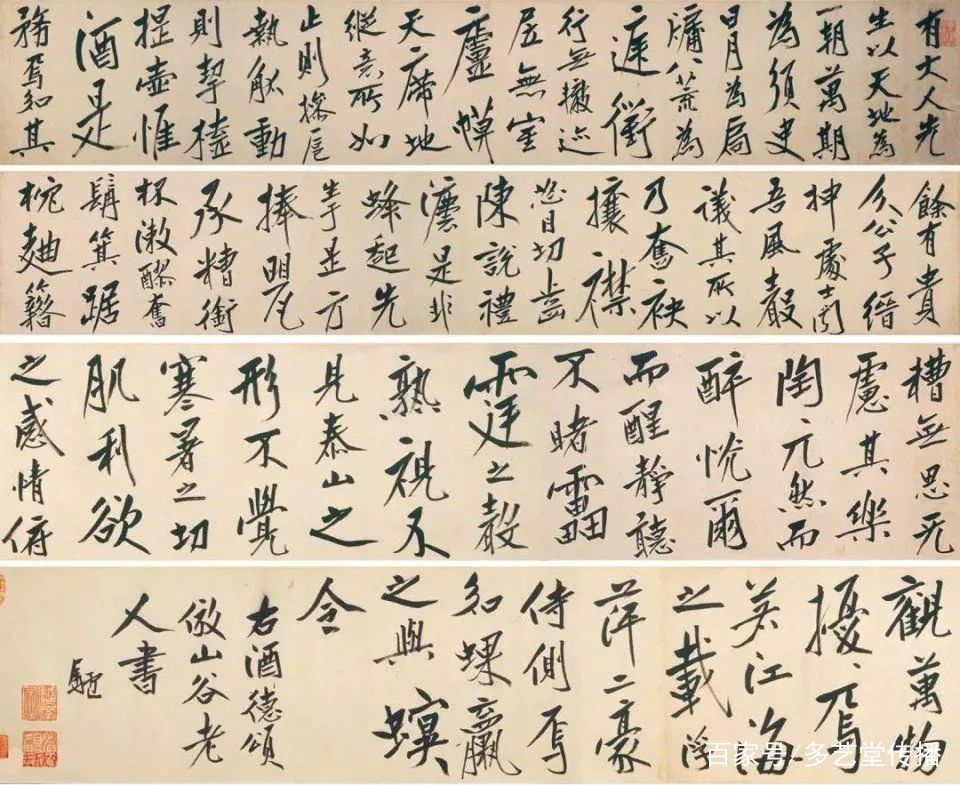 有大人先
生以天地為
一朝萬期
為須臾
日月為扃
牖八荒為
庭衢
行無轍迹
居無室
廬幙
天席地
縱意所如
止則操卮
執觚動
則挈榼
提壺惟
酒是
務焉知其
餘有貴
介公子縉
紳處士聞
吾風聲
議其所以
乃奮袂
攘襟
怒目切齒
陳說禮
灋是非
蜂起先
生於是方
捧甖
承糟銜
杯漱醪奮
髯箕踞
枕麯籍
糟無思无
慮其樂
陶〻兀然而
醉怳爾
而醒靜聽
不睹雷
霆之聲
熟視不
見泰山之
形不覺
寒暑之切
肌利欲
之感情俯
觀萬物
擾〻焉
若江海
之載浮
萍二豪
侍側焉
知蜾蠃
之與螟
令
右酒德頌
倣山谷老
人書
百家号/多艺堂传播